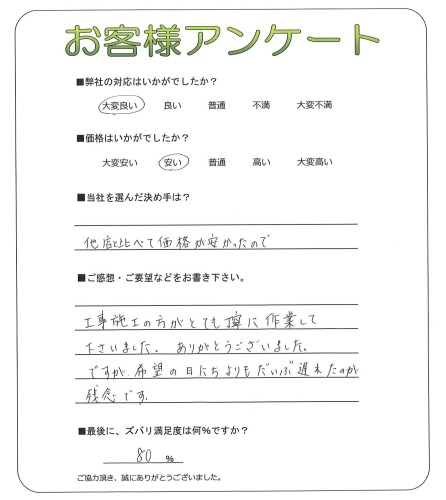 お客様アンケート
■弊社の対応はいかがでしたか？
大変良い 良い 普通 不満 大変不満
■価格はいかがでしたか？
大変安い 安い 普通 高い 大変高い
■当社を選んだ決め手は？
他店と比べて価格が安かったので
■ご感想・ご要望などをお書き下さい。
工事施工の方がとても寧に作業して
下さいました。ありがとうございました。
ですが、希望の日にちよりもだいぶ遅れたのが
残念です。
■最後に、ズバリ満足度は何％ですか？
80 ％
ご協力頂き、誠にありがとうございました。